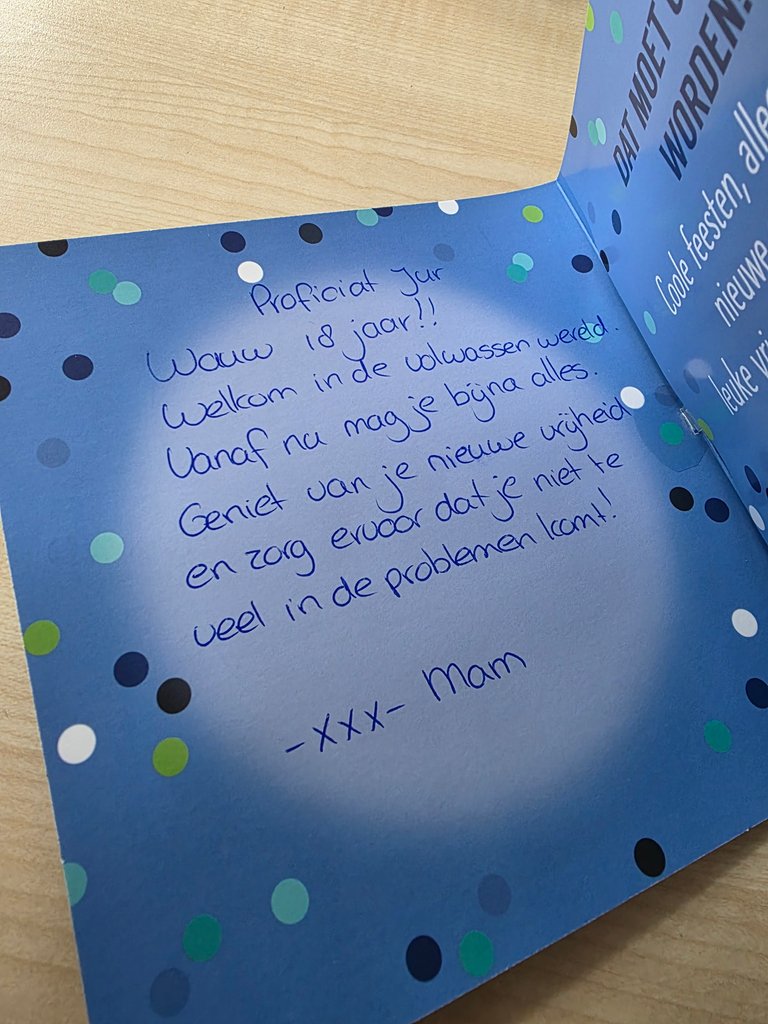 Proficiat Jur
Wauw 18 jaar!!
Welkom in de volwassen wereld.
Vanaf nu mag je bijna alles.
Geniet van je nieuwe vrijheid
en zorg ervoor dat je niet te
veel in de problemen komt!
-xxx- Mam
DAT MOET
WORDEN!
Coole feesten,
nieuwe
leuke